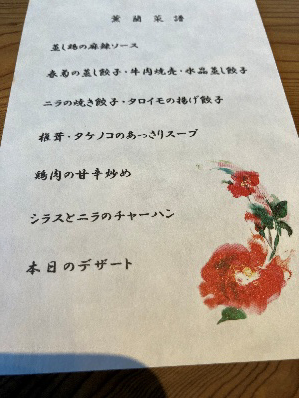 薫蘭菜譜
蒸し鶏の麻辣ソース
春菊の蒸し餃子・牛肉焼売・水晶蒸し餃子
ニラの焼き餃子・タロイモの揚げ餃子
椎茸・タケノコのあっさりスープ
鶏肉の甘辛炒め
シラスとニラのチャーハン
本日のデザート